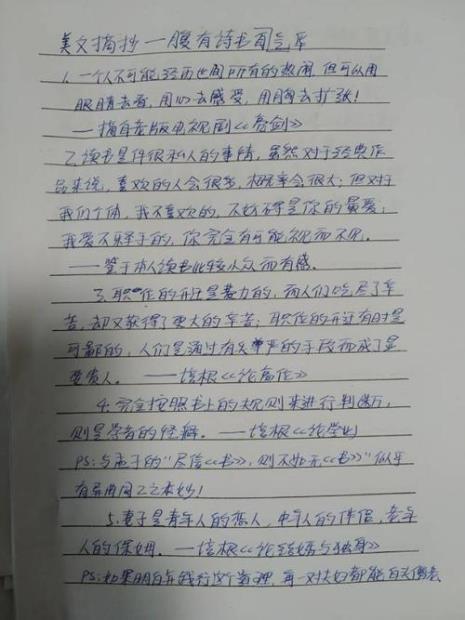 美文摘抄一腹有诗书自气华
1.一个人不可能经历世间所有的热闹,但可以用
眼睛去看,用心去感受,用胸去扩张!
—摘自老版电视剧《亮剑》
2.读书是件很私人的事情,虽然对于经典作
品来说,喜欢的人会很多,概率会很大;但对于
我们个体,我不喜欢的,不妨碍是你的最爱;
我爱不释手的,你完全有可能视而不见。
——鉴于本人读书比较小众而有感.
3.职位的升迁是费力的,而人们吃尽了辛
苦,却又获得了更大的辛苦;职位的升迁有时是
可鄙的,人们是通过有失尊严的手段而成了显
要贵人。——培根《论高位》
4.完全按照书上的规则来进行判断,
则是学者的怪癖。——培根《论学业》
PS:与孟子的"尽信《书》,则不如无《书》"似乎
有异曲同工之奇妙!
5.妻子是青年人的恋人,中年人的伴侣,老年
人的保姆。——培根《论结婚与独身》
PS:如果明白并践行这个道理,每一对夫妇都能白头偕老